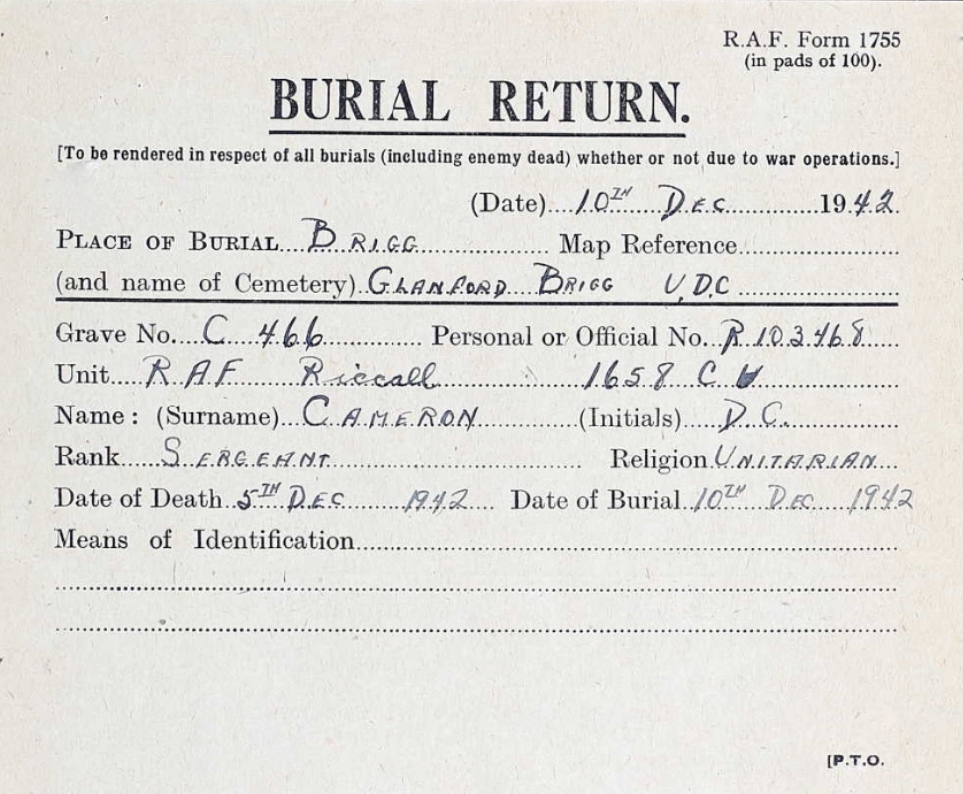 R.A.F. Form 1755
(in pads of 100).
BURIAL RETURN.
[To be rendered in respect of all burials (including enemy dead) whether or not due to war operations.]
(Date) 10TH DEC 1942.
PLACE OF BURIAL BRIGG Map Reference
(and name of Cemetery) GLANFORD BRIGG U.D.C
Grave No. C 466 Personal or Official No. R 103468
Unit RAF Riccall 1658 C U
Name: (Surname) CAMERON (Initials) D. C.
Rank SERGEANT Religion UNITARIAN
Date of Death 5TH DEC 1942 Date of Burial 10TH DEC 1942
Means of Identification
[P.T.O.